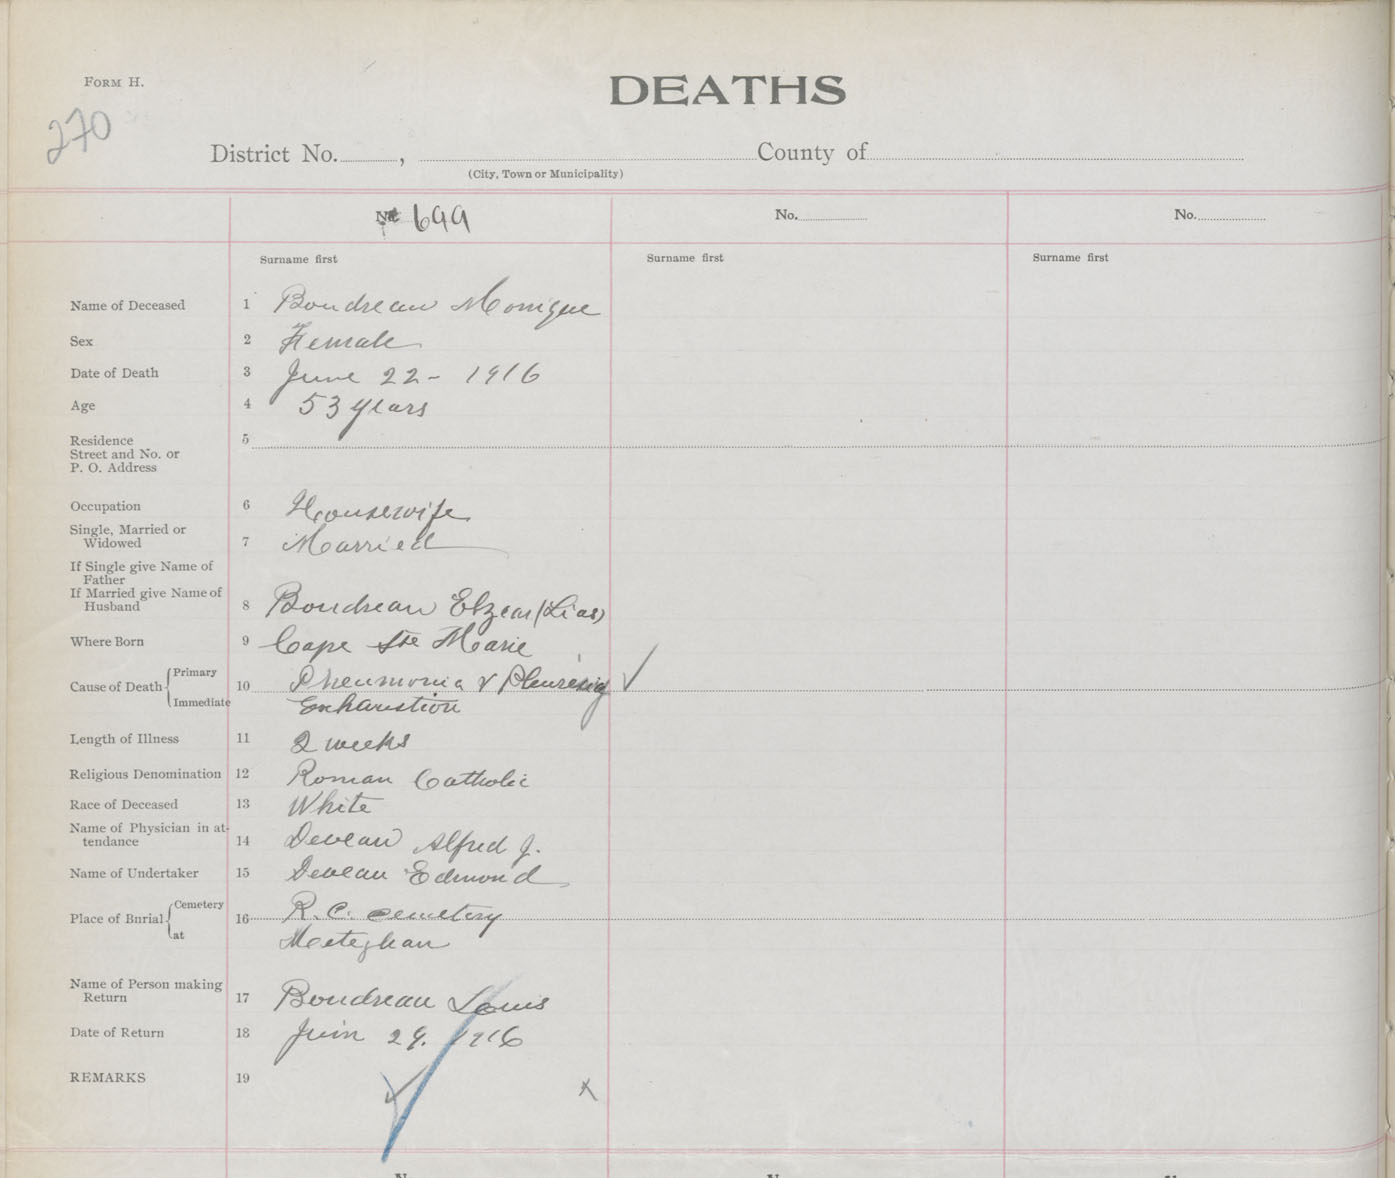 FORM H.
DEATHS
270
District No. , County of
(City, Town or Municipality)
No. 699 No. No.
Surname first Surname first Surname first
Name of Deceased 1 Boudreau Monique
Sex 2 Female
Date of Death 3 June 22 - 1916
Age 4 53 years
Residence 5
Street and No. or
P. O. Address
Occupation 6 Housewife
Single, Married or
Widowed 7 Married
If Single give Name of
Father
If Married give Name of
Husband 8 Boudreau Elzear (Lias)
Where Born 9 Cape Ste Marie
Cause of Death Primary 10 Pneumonia & Pleurésig
Immediate Exhaustion
Length of Illness 11 2 weeks
Religious Denomination 12 Roman Catholic
Race of Deceased 13 White
Name of Physician in at-
tendance 14 Deveau Alfred J.
Name of Undertaker 15 Deveau Edmond
Place of Burial Cemetery 16 R. C. Cemetery
at Meteghan
Name of Person making
Return 17 Boudreau Louis
Date of Return 18 Juin 29. 1916
REMARKS 19